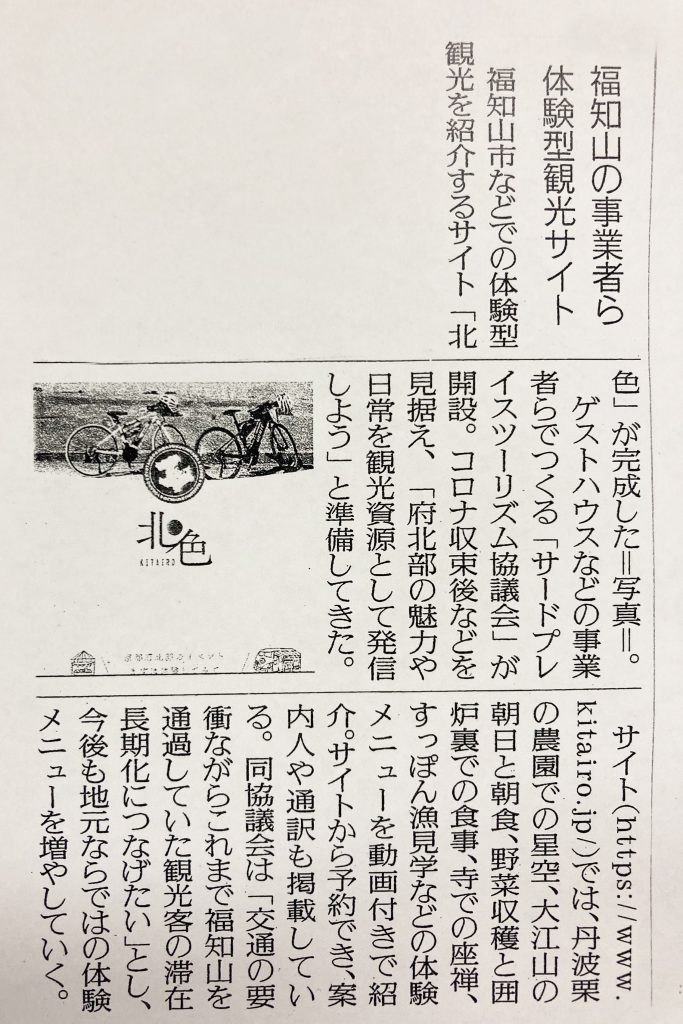 福知山の事業者ら
体験型観光サイト
福知山市などでの体験型
観光を紹介するサイト「北
色」が完成した＝写真＝。
ゲストハウスなどの事業
者らでつくる「サードプレ
イスツーリズム協議会」が
開設。コロナ収束後などを
見据え、「府北部の魅力や
日常を観光資源として発信
しよう」と準備してきた。
北色
KITAIRO
サイト(https://www.
kitairo.jp/)では、丹波栗
の農園での星空、大江山の
朝日と朝食、野菜収穫と囲
炉裏での食事、寺での座禅、
すっぽん漁見学などの体験
メニューを動画付きで紹
介。サイトから予約でき、案
内人や通訳も掲載してい
る。同協議会は「交通の要
衝ながらこれまで福知山を
通過していた観光客の滞在
長期化につなげたい」とし、
今後も地元ならではの体験
メニューを増やしていく。